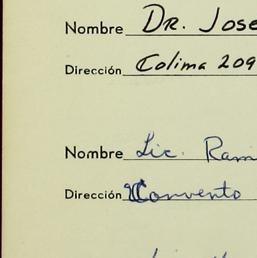 Nombre DR. Jose
Dirección Colima 209
Nombre Lic. Rami
Dirección Convento